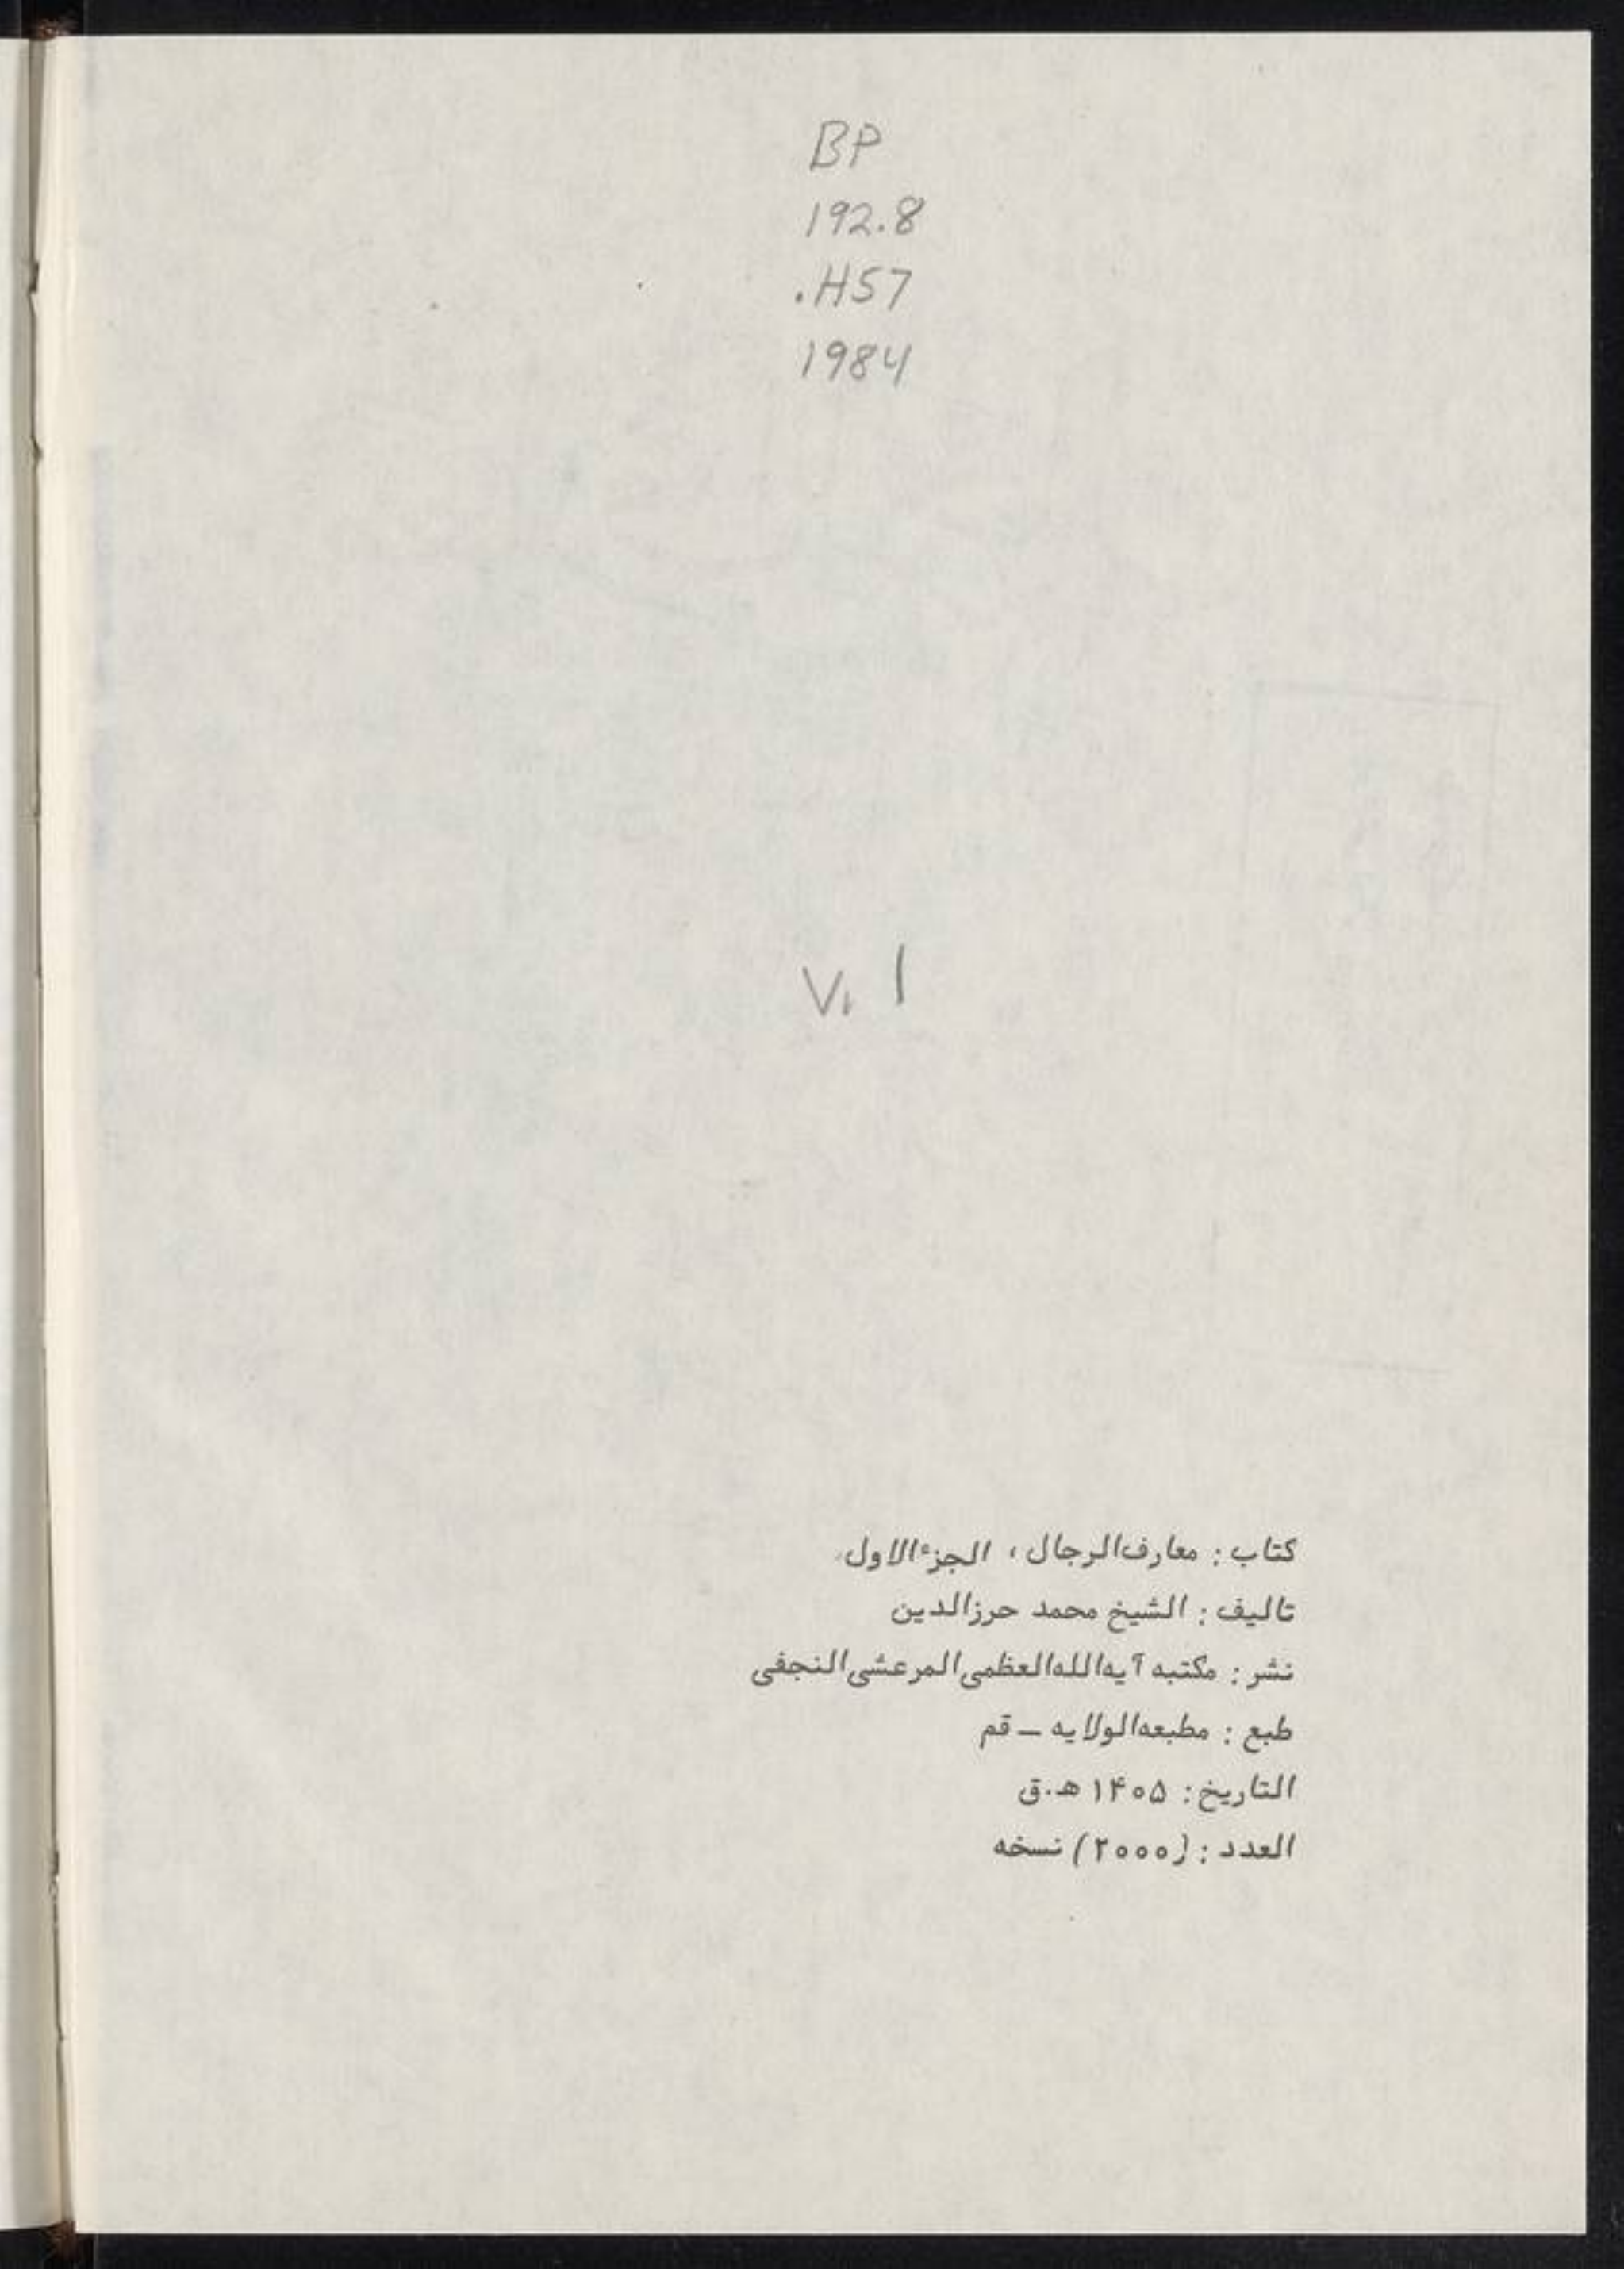 BP
192.8
.H57
1984
V. 1
كتاب : معارف الرجال ، الجزء الاول
تاليف : الشيخ محمد حرزالدين
نشر : مكتبه آيه الله العظمى المرعشى النجفى
طبع : مطبعه الولايه ــ قم
التاريخ : ۱۴۰۵ هـ.ق
العدد : (۲۰۰۰) نسخه